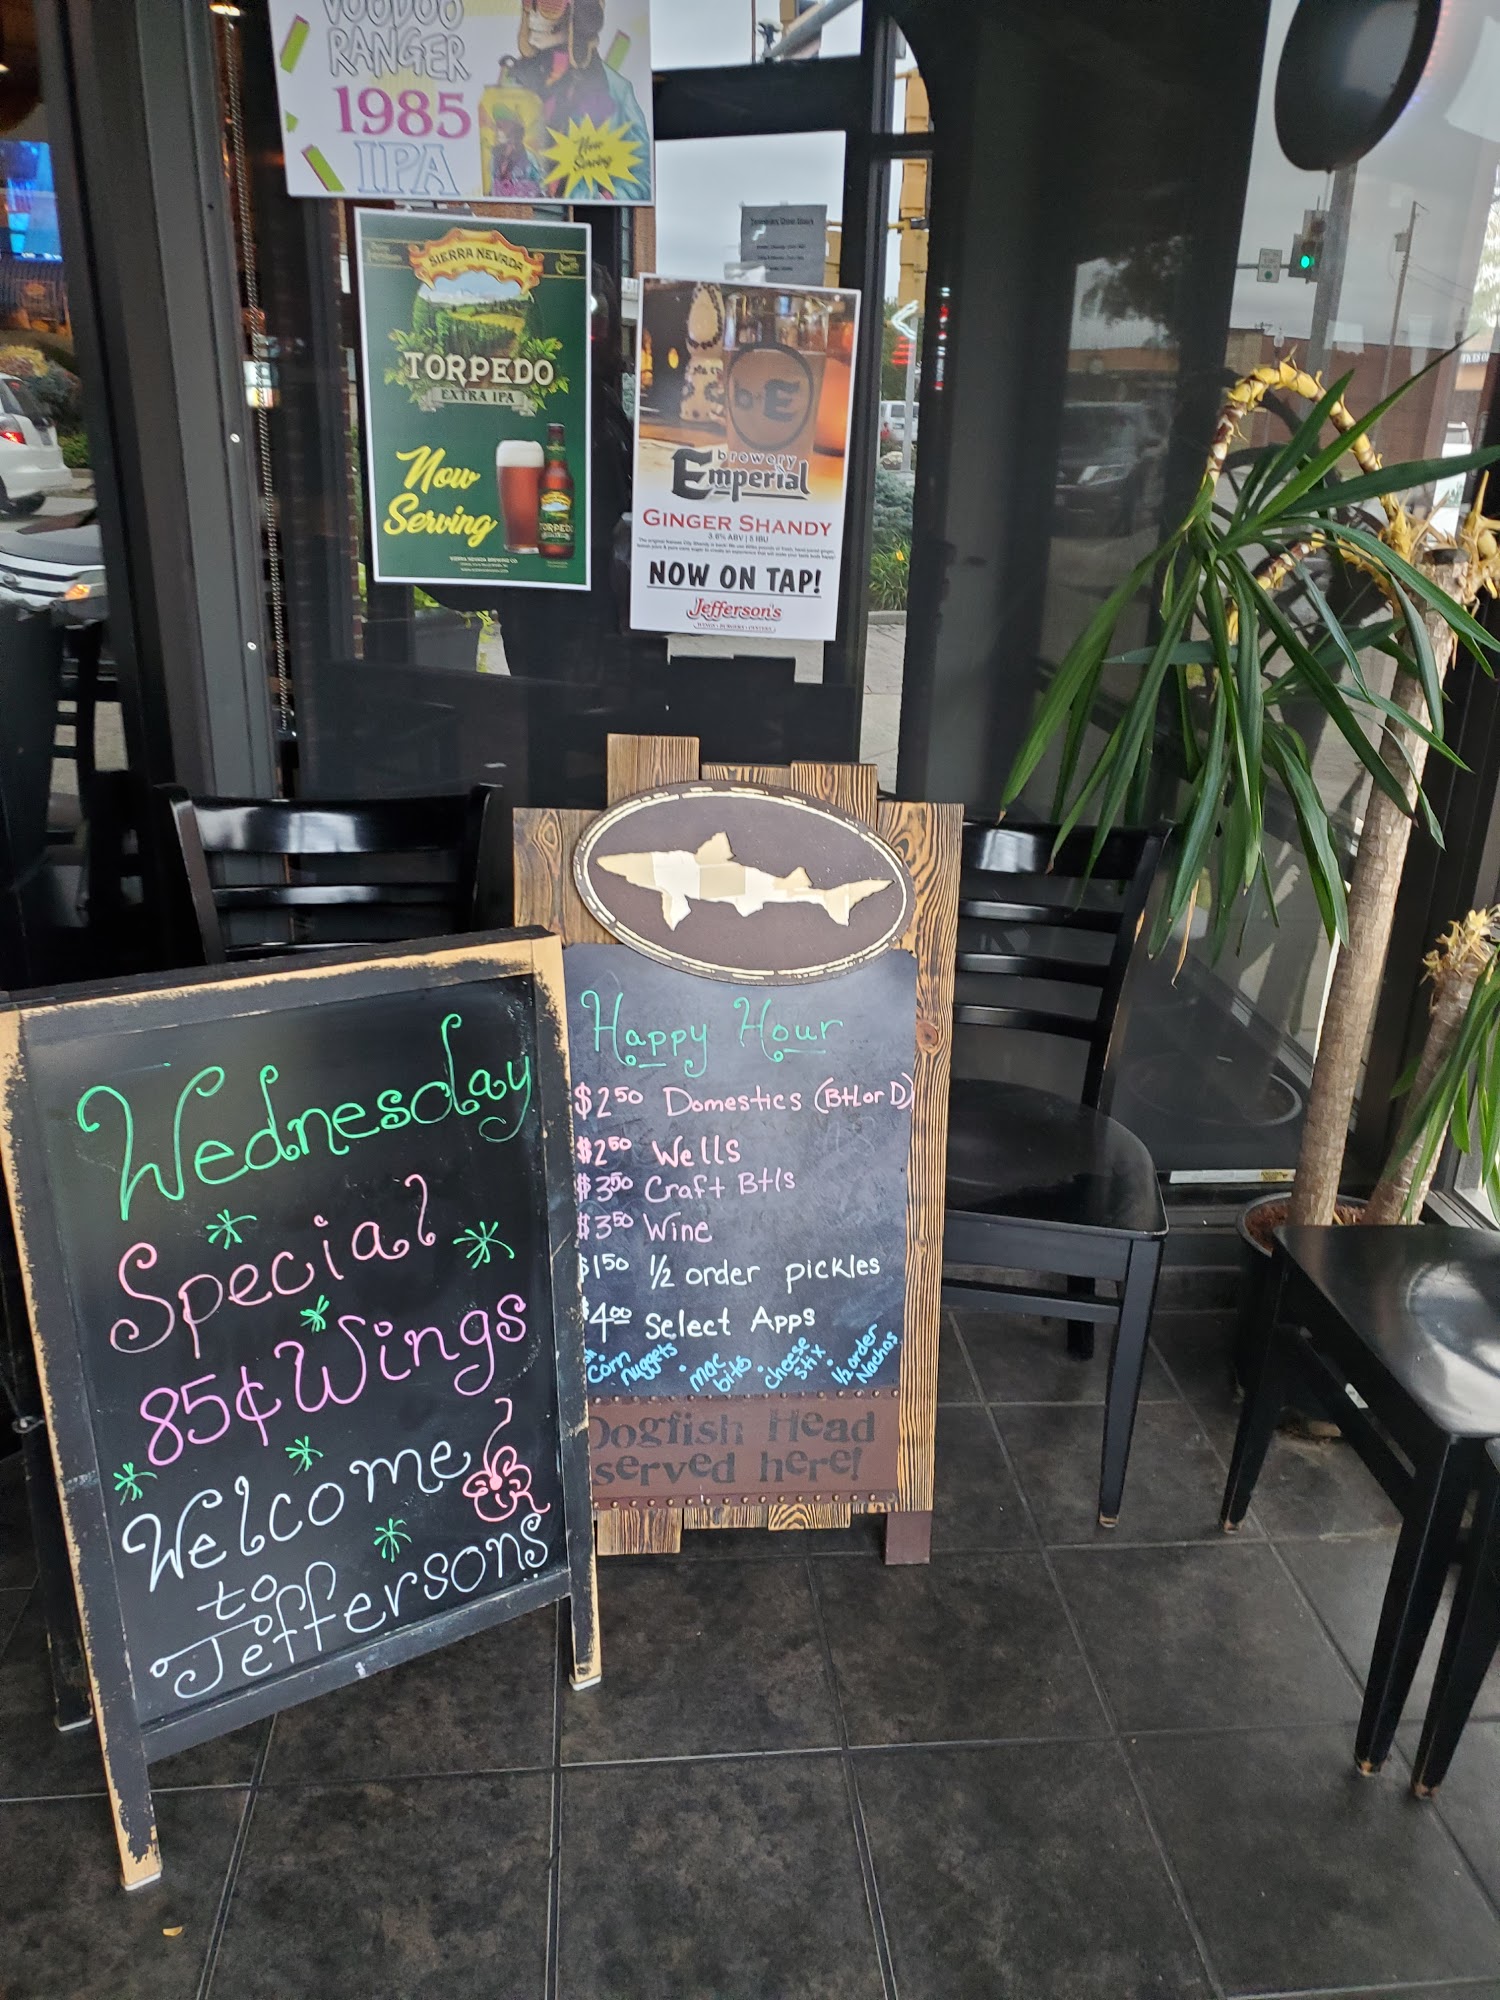 VOODOO
RANGER
1985
IPA
Now
Serving
SIERRA NEVADA
TORPEDO
EXTRA IPA
Now
Serving
TORPEDO
b E
brewery
Emperial
GINGER SHANDY
3.6% ABV | 5 IBU
NOW ON TAP!
Jefferson's
WINGS • BURGERS • OYSTERS
Happy Hour
$2.50 Domestics (Btl or D)
$2.50 Wells
$3.50 Craft Btls
$3.50 Wine
$1.50 1/2 order pickles
$4.00 Select Apps
corn nuggets
mac bites
cheese stix
1/2 order Nachos
Dogfish Head
served here!
Wednesday
Special
85¢ Wings
Welcome
to
Jeffersons